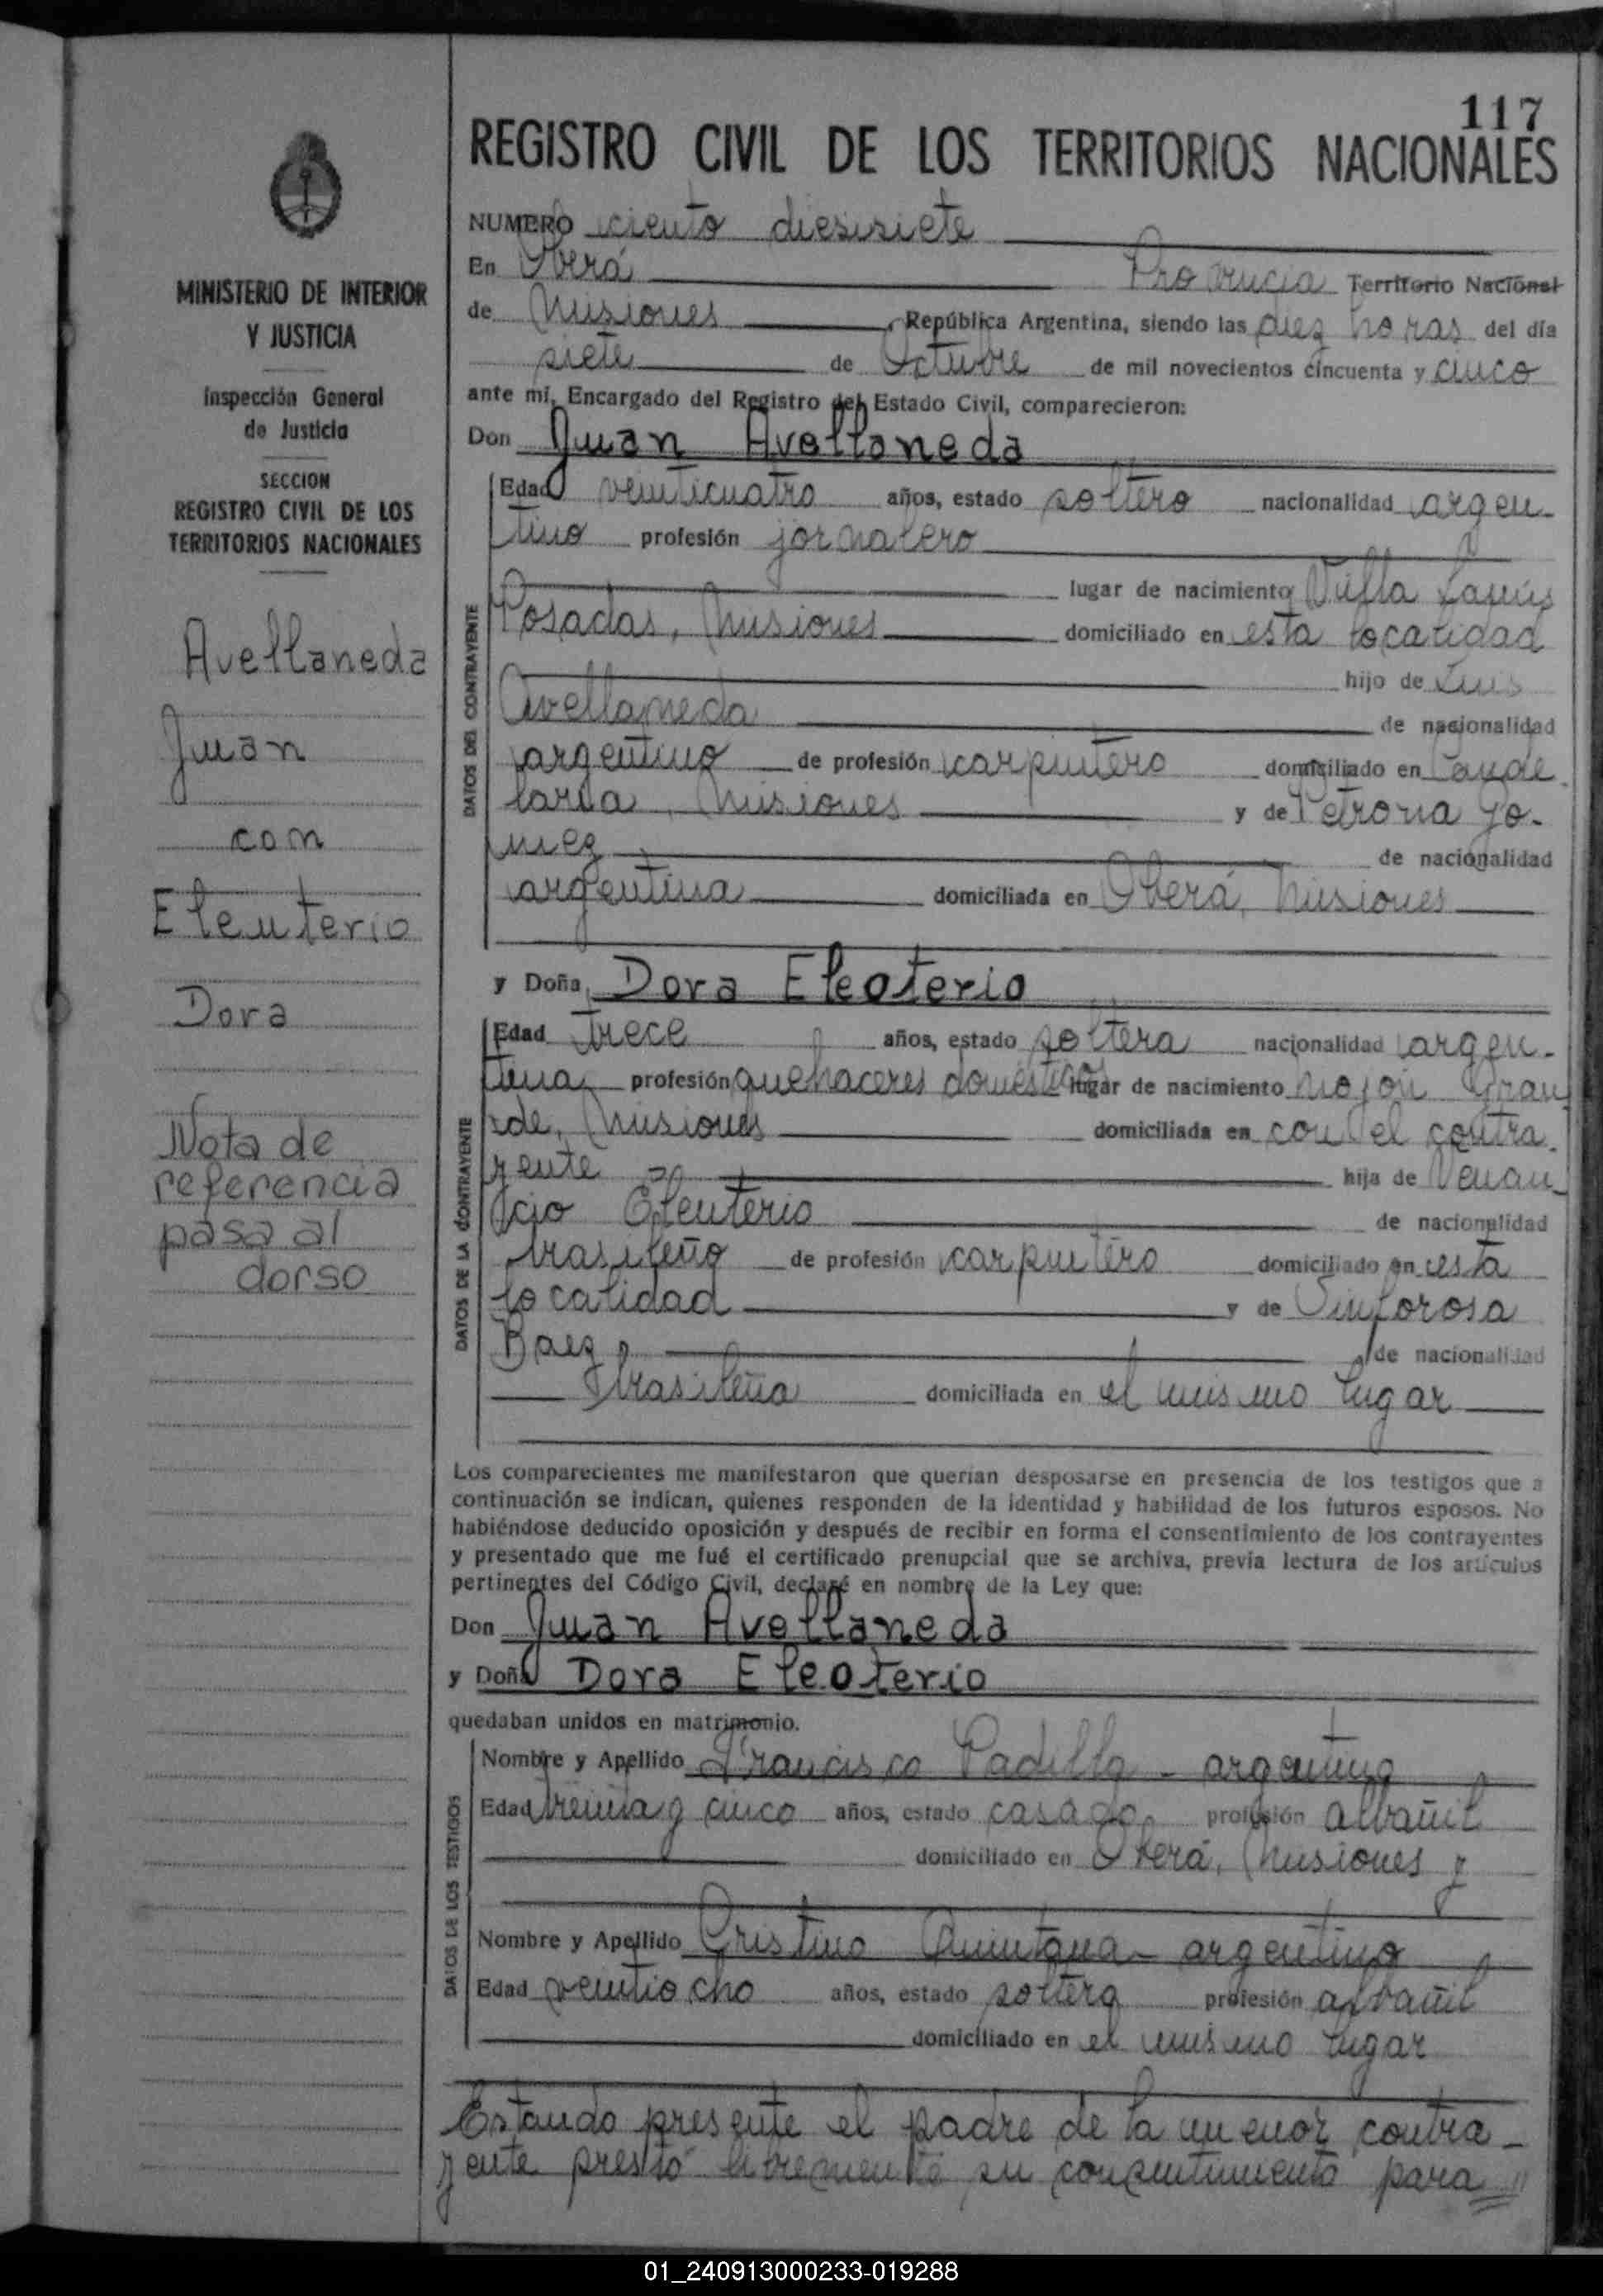 117
REGISTRO CIVIL DE LOS TERRITORIOS NACIONALES
NUMERO ciento diesisiete
En Oberá Provincia Territorio Nacional
de Misiones, República Argentina, siendo las diez horas del día
siete de Octubre de mil novecientos cincuenta y cinco
ante mí, Encargado del Registro del Estado Civil, comparecieron:
Don Juan Avellaneda
DATOS DEL CONTRAYENTE
Edad veinticuatro años, estado soltero nacionalidad argen-
tino profesión jornalero
lugar de nacimiento Villa Lanús
Posadas, Misiones domiciliado en esta localidad
hijo de Luis
Avellaneda de nacionalidad
argentino de profesión carpintero domiciliado en Cande
laria, Misiones y de Petrona Go-
mez de nacionalidad
argentina domiciliada en Oberá, Misiones
y Doña Dora Eleoterio
DATOS DE LA CONTRAYENTE
Edad trece años, estado soltera nacionalidad argen-
tina profesión quehaceres domesticos lugar de nacimiento Mojon Gran
de, Misiones domiciliada en con el contra.
yente hija de Venan
cio Eleuterio de nacionalidad
brasileño de profesión carpintero domiciliado en esta
localidad y de Sinforosa
Baez de nacionalidad
brasileña domiciliada en el mismo lugar
Los comparecientes me manifestaron que querían desposarse en presencia de los testigos que a
continuación se indican, quienes responden de la identidad y habilidad de los futuros esposos. No
habiéndose deducido oposición y después de recibir en forma el consentimiento de los contrayentes
y presentado que me fué el certificado prenupcial que se archiva, previa lectura de los artículos
pertinentes del Código Civil, declaré en nombre de la Ley que:
Don Juan Avellaneda
y Doña Dora Eleoterio
quedaban unidos en matrimonio.
DATOS DE LOS TESTIGOS
Nombre y Apellido Francisco Padilla - argentino
Edad treinta y cinco años, estado casado profesión albañil
domiciliado en Oberá, Misiones y
Nombre y Apellido Cristino Quintana - argentino
Edad veintiocho años, estado soltero profesión albañil
domiciliado en el mismo lugar
Estando presente el padre de la menor contra-
yente prestó libremente su consentimiento para //
MINISTERIO DE INTERIOR
Y JUSTICIA
Inspección General
de Justicia
SECCION
REGISTRO CIVIL DE LOS
TERRITORIOS NACIONALES
Avellaneda
Juan
con
Eleuterio
Dora
Nota de
referencia
pasa al
dorso
01_240913000233-019288